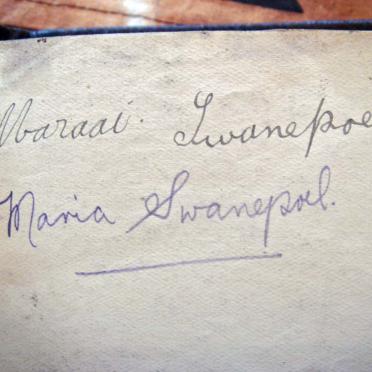 Maraai. Swanepoe
Maria Swanepoel.